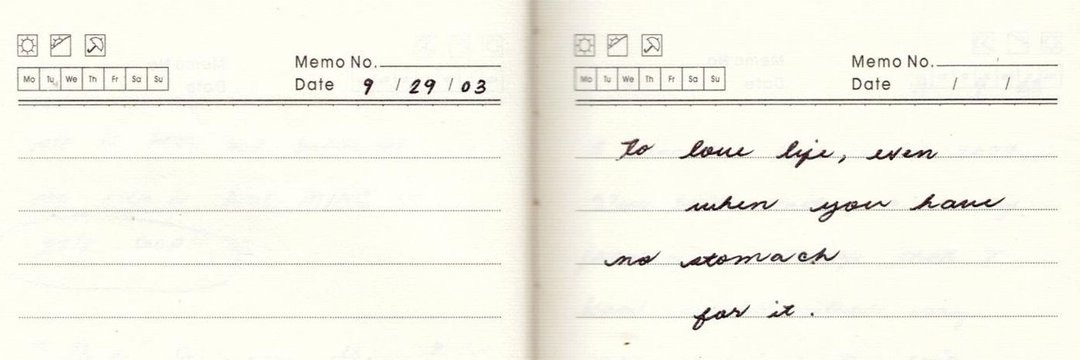 Memo No.
Mo Tu We Th Fr Sa Su
Date 9 / 29 / 03
Memo No.
Mo Tu We Th Fr Sa Su
Date / /
To love life, even
when you have
no stomach
for it.